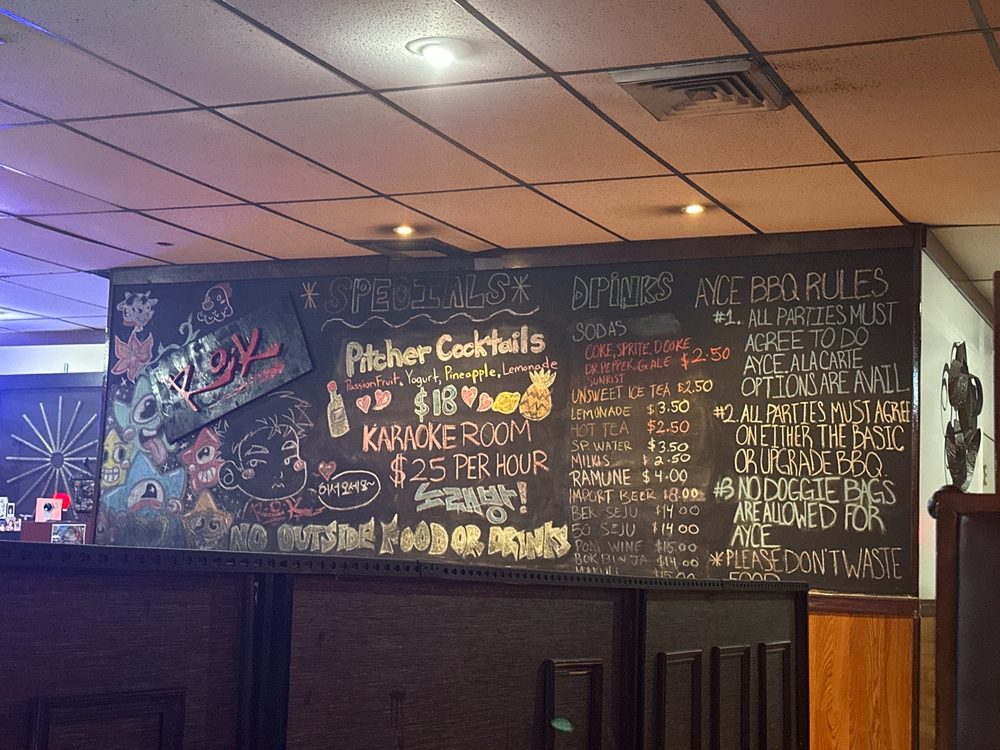 SPECIALS
Pitcher Cocktails
Passionfruit, Yogurt, Pineapple, Lemonade
$18
KARAOKE ROOM
$25 PER HOUR
노래방!
어서오세요~
NO OUTSIDE FOOD OR DRINKS
DRINKS
SODAS
COKE, SPRITE, D.COKE
DR. PEPPER, G.ALE $2.50
SUNKIST
UNSWEET ICE TEA $2.50
LEMONADE $3.50
HOT TEA $2.50
SP. WATER $3.50
MILKIS $2.50
RAMUNE $4.00
IMPORT BEER $8.00
BEK SEJU $14.00
50 SEJU $14.00
POM WINE $15.00
BOK BUN JA $14.00
AYCE BBQ RULES
#1. ALL PARTIES MUST
AGREE TO DO
AYCE. ALA CARTE
OPTIONS ARE AVAIL
#2. ALL PARTIES MUST AGREE
ON EITHER THE BASIC
OR UPGRADE BBQ.
#3 NO DOGGIE BAGS
ARE ALLOWED FOR
AYCE
*PLEASE DON'T WASTE
FOOD